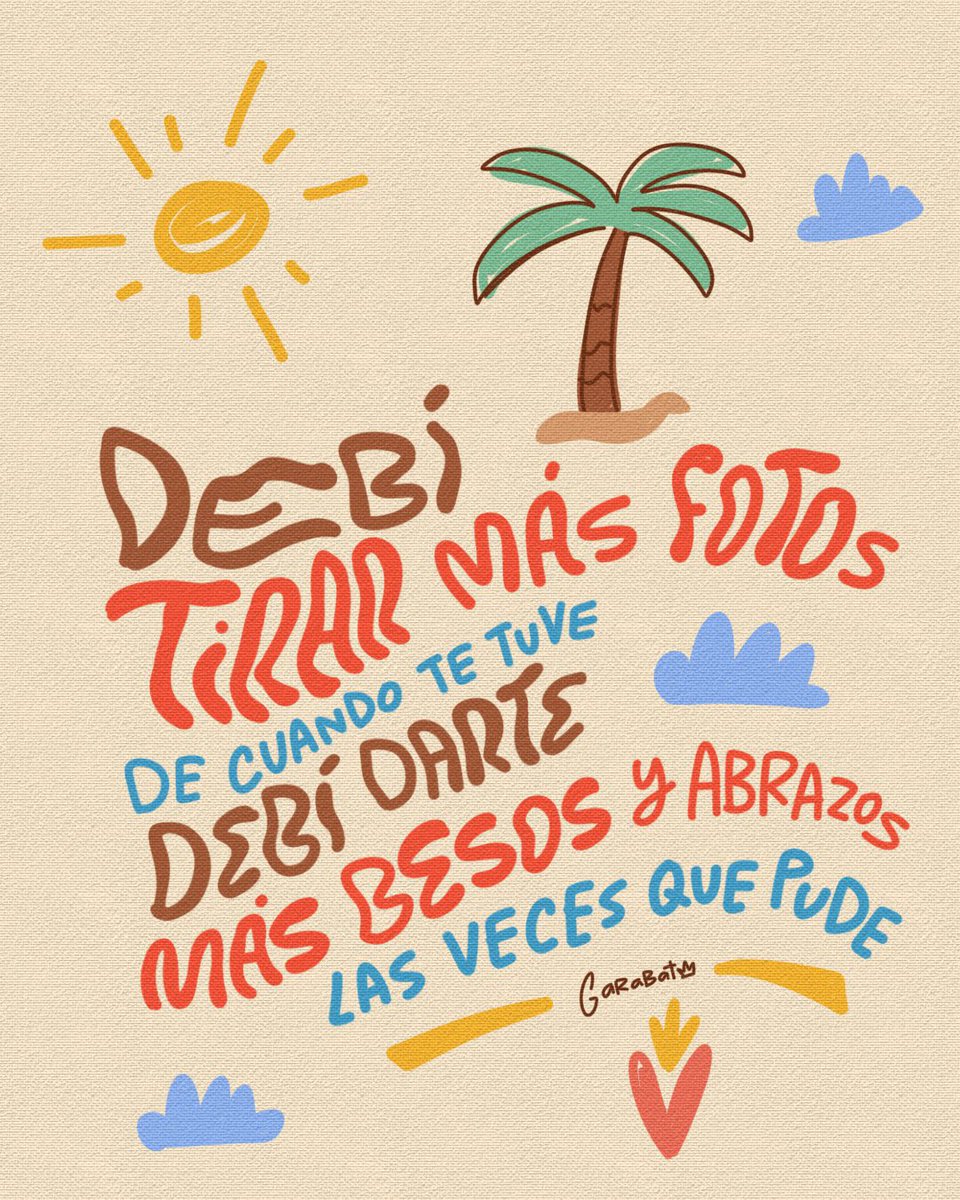 DEBÍ
TIRAR MÁS FOTOS
DE CUANDO TE TUVE
DEBÍ DARTE
MÁS BESOS Y ABRAZOS
LAS VECES QUE PUDE
GaRaBato